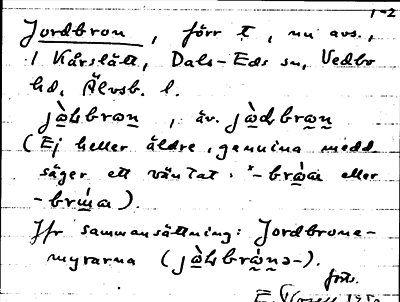 1-2
Jordbron, förr t, nu avs.,
i Kårslätt, Dals-Eds sn, Vedbo
hd, Älvsb. l.
jo̱ḷbro̱n, äv. jo̱ḍbro̱n
(Ej heller äldre, genuina medd.
säger ett väntat *-bro̱a eller
-bru̱a).
Jfr sammansättning: Jordbrone-
myrarna (jo̱ḷbro̱nə-).
forts.